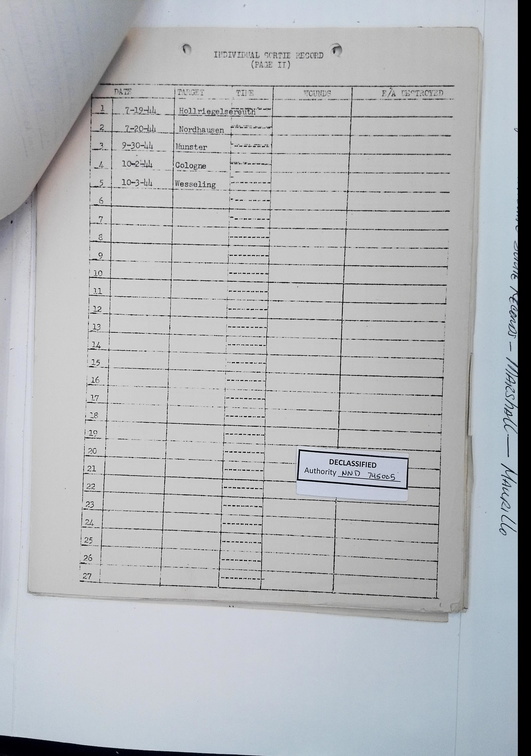 INDIVIDUAL SORTIE RECORD
(PAGE II)
DATE TARGET TIME WOUNDS E/A DESTROYED
1 7-19-44 Hollriegelsereuth
2 7-20-44 Nordhausen
3 9-30-44 Munster
4 10-2-44 Cologne
5 10-3-44 Wesseling
6
7
8
9
10
11
12
13
14
15
16
17
18
19
20
21
22
23
24
25
26
27
DECLASSIFIED
Authority NND 745005
Records - Marshall - Maurello